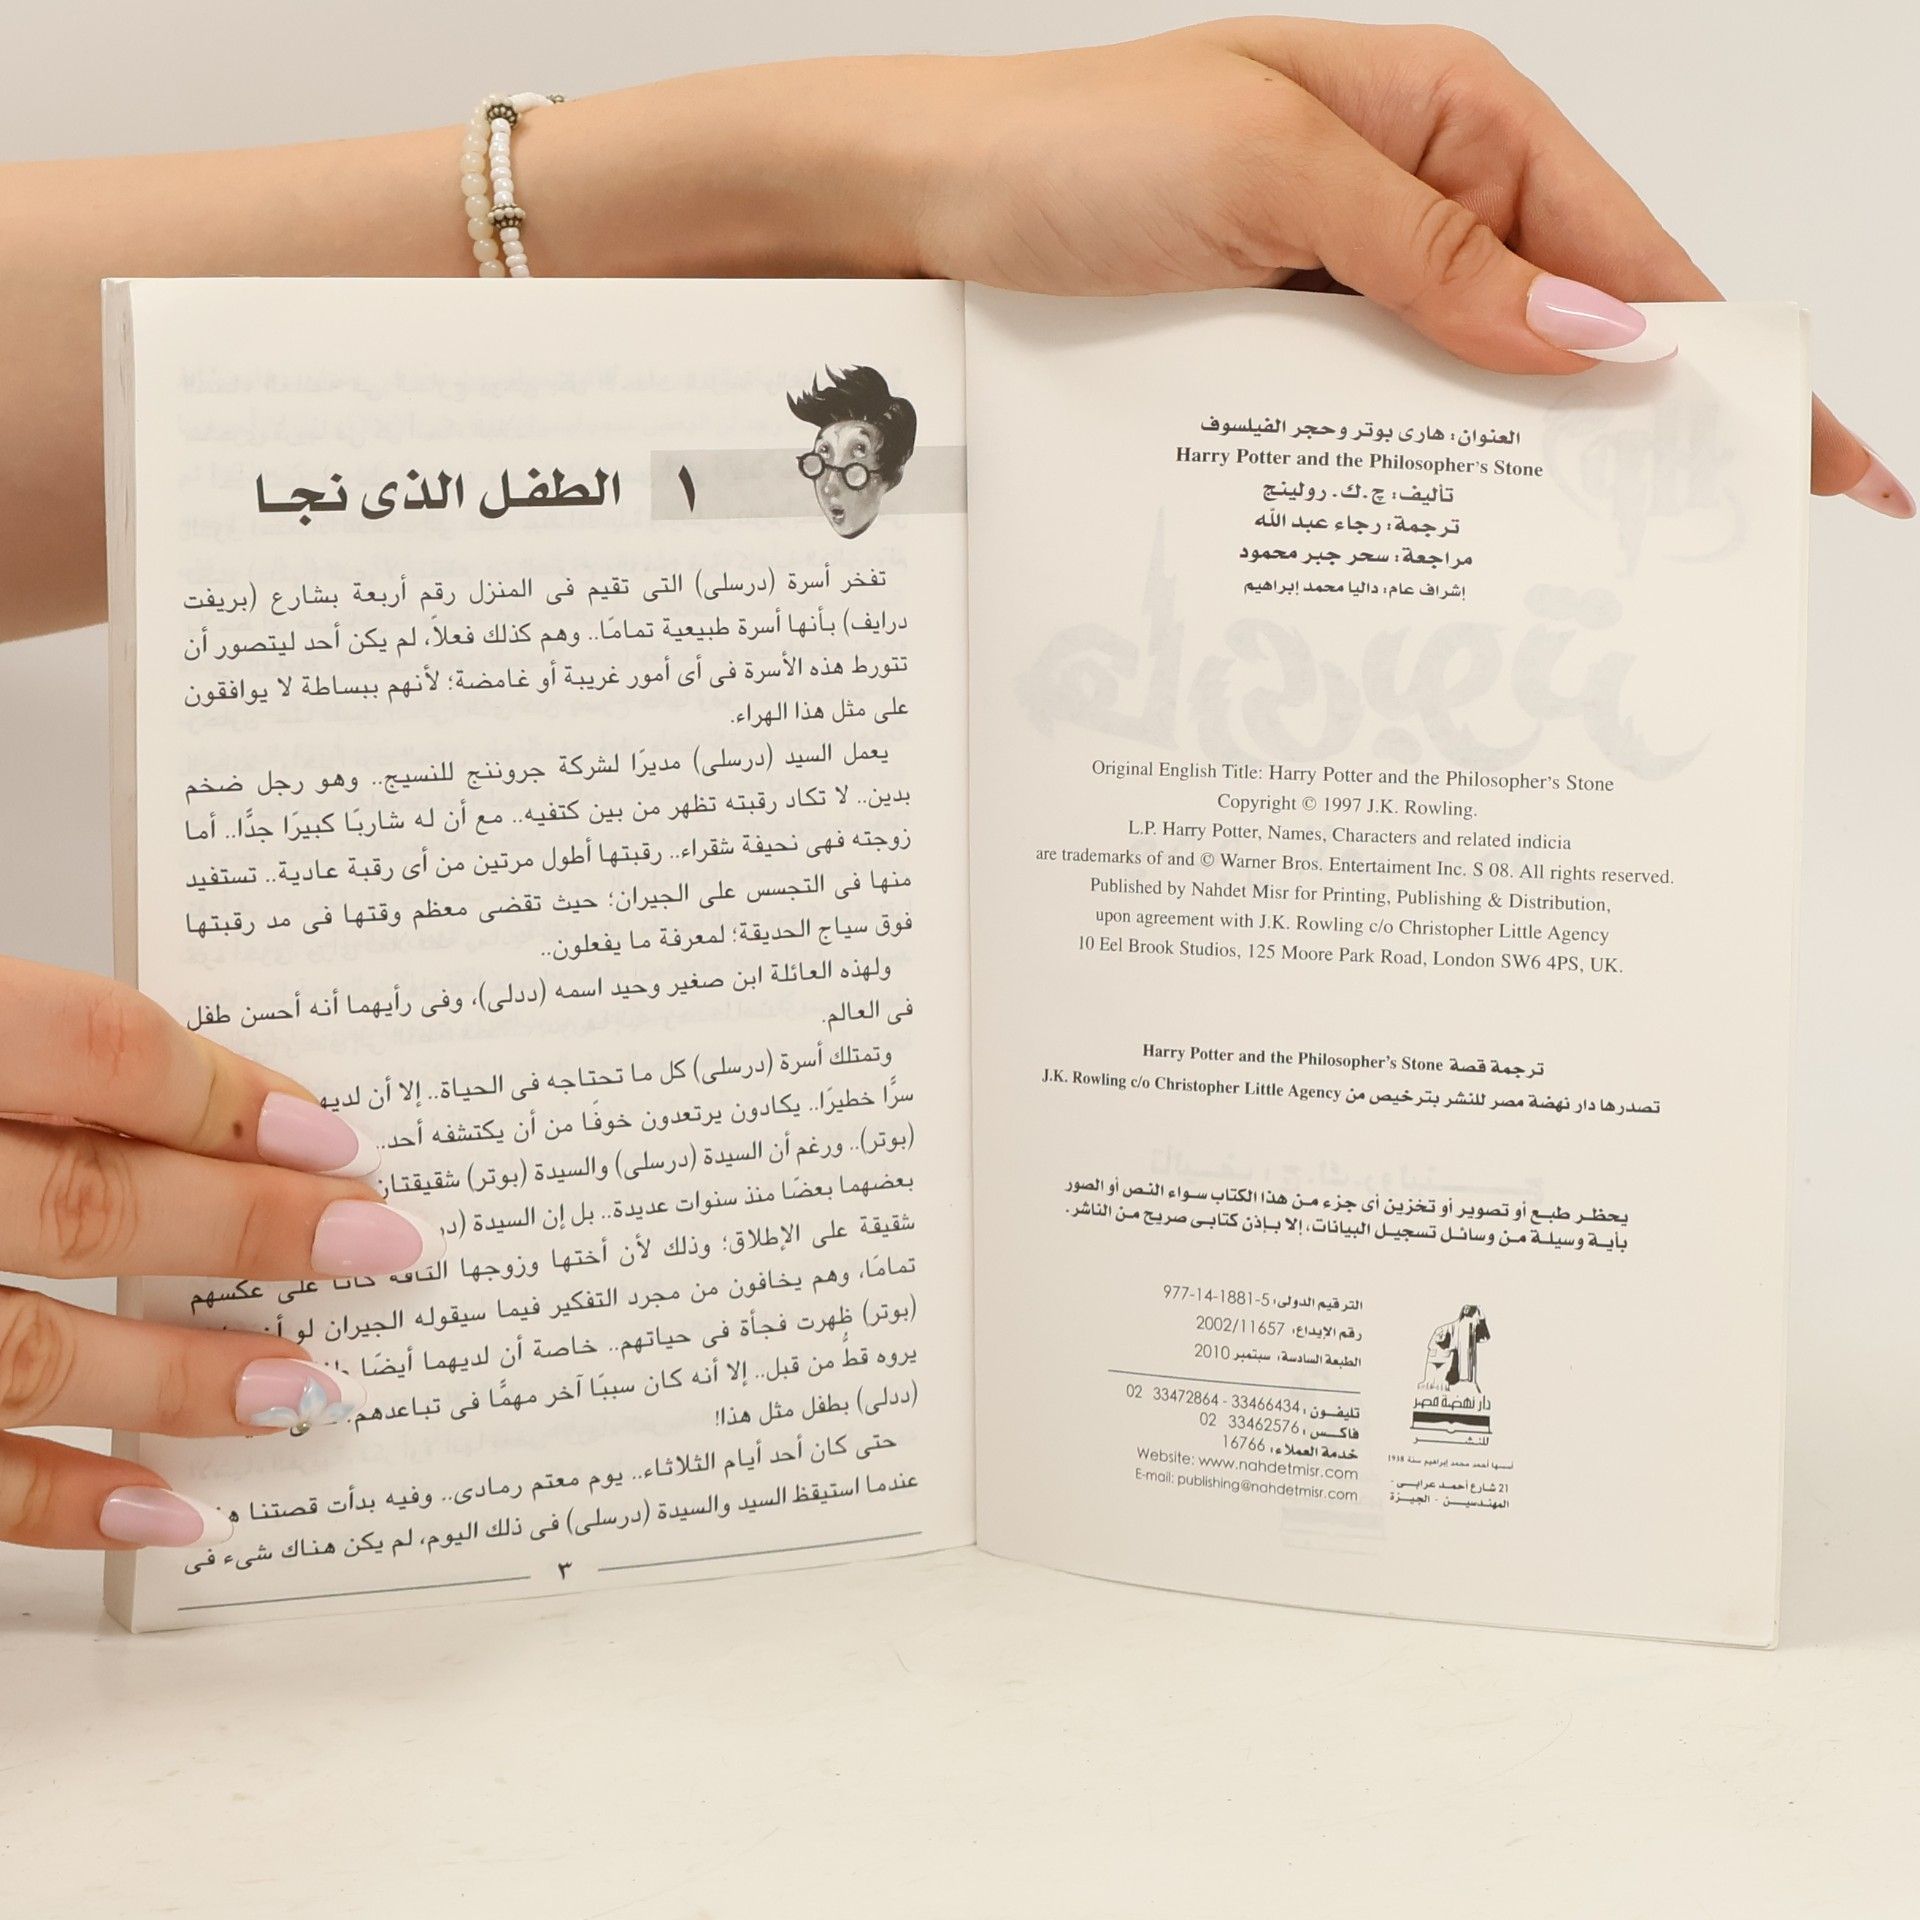 العنوان: هارى بوتر وحجر الفيلسوف
Harry Potter and the Philosopher's Stone
تأليف: چ.ك. رولينج
ترجمة: رجاء عبد الله
مراجعة: سحر جبر محمود
إشراف عام: داليا محمد إبراهيم
Original English Title: Harry Potter and the Philosopher's Stone
Copyright © 1997 J.K. Rowling.
L.P. Harry Potter, Names, Characters and related indicia
are trademarks of and © Warner Bros. Entertaiment Inc. S 08. All rights reserved.
Published by Nahdet Misr for Printing, Publishing & Distribution,
upon agreement with J.K. Rowling c/o Christopher Little Agency
10 Eel Brook Studios, 125 Moore Park Road, London SW6 4PS, UK.
ترجمة قصة Harry Potter and the Philosopher's Stone
تصدرها دار نهضة مصر للنشر بترخيص من J.K. Rowling c/o Christopher Little Agency
يحظر طبع أو تصوير أو تخزين أى جزء من هذا الكتاب سواء النص أو الصور
بأية وسيلة من وسائل تسجيل البيانات، إلا بإذن كتابى صريح من الناشر.
الترقيم الدولى: 5-1881-14-977
رقم الإيداع: 2002/11657
الطبعة السادسة: سبتمبر 2010
تليفون: 33466434 - 33472864 02
فاكس: 33462576 02
خدمة العملاء: 16766
Website: www.nahdetmisr.com
E-mail: publishing@nahdetmisr.com
دار نهضة مصر
للنشر
أسسها أحمد محمد إبراهيم سنة 1938
21 شارع أحمد عرابى -
المهندسين - الجيزة
١ الطفل الذى نجا
تفخر أسرة (درسلى) التى تقيم فى المنزل رقم أربعة بشارع (بريفت
درايف) بأنها أسرة طبيعية تمامًا.. وهم كذلك فعلاً، لم يكن أحد ليتصور أن
تتورط هذه الأسرة فى أى أمور غريبة أو غامضة؛ لأنهم ببساطة لا يوافقون
على مثل هذا الهراء.
يعمل السيد (درسلى) مديرًا لشركة جروننج للنسيج.. وهو رجل ضخم
بدين.. لا تكاد رقبته تظهر من بين كتفيه.. مع أن له شاربًا كبيرًا جدًّا.. أما
زوجته فهى نحيفة شقراء.. رقبتها أطول مرتين من أى رقبة عادية.. تستفيد
منها فى التجسس على الجيران؛ حيث تقضى معظم وقتها فى مد رقبتها
فوق سياج الحديقة؛ لمعرفة ما يفعلون..
ولهذه العائلة ابن صغير وحيد اسمه (ددلى)، وفى رأيهما أنه أحسن طفل
فى العالم.
وتمتلك أسرة (درسلى) كل ما تحتاجه فى الحياة.. إلا أن لديهم
سرًّا خطيرًا.. يكادون يرتعدون خوفًا من أن يكتشفه أحد..
(بوتر).. ورغم أن السيدة (درسلى) والسيدة (بوتر) شقيقتان
بعضهما بعضًا منذ سنوات عديدة.. بل إن السيدة
شقيقة على الإطلاق؛ وذلك لأن أختها وزوجها التافه كانا على عكسهم
تمامًا، وهم يخافون من مجرد التفكير فيما سيقوله الجيران لو
(بوتر) ظهرت فجأة فى حياتهم.. خاصة أن لديهما أيضًا
يروه قطُّ من قبل.. إلا أنه كان سببًا آخر مهمًّا فى تباعدهم.
(ددلى) بطفل مثل هذا!
حتى كان أحد أيام الثلاثاء.. يوم معتم رمادى.. وفيه بدأت قصتنا
عندما استيقظ السيد والسيدة (درسلى) فى ذلك اليوم، لم يكن هناك شىء فى
٣